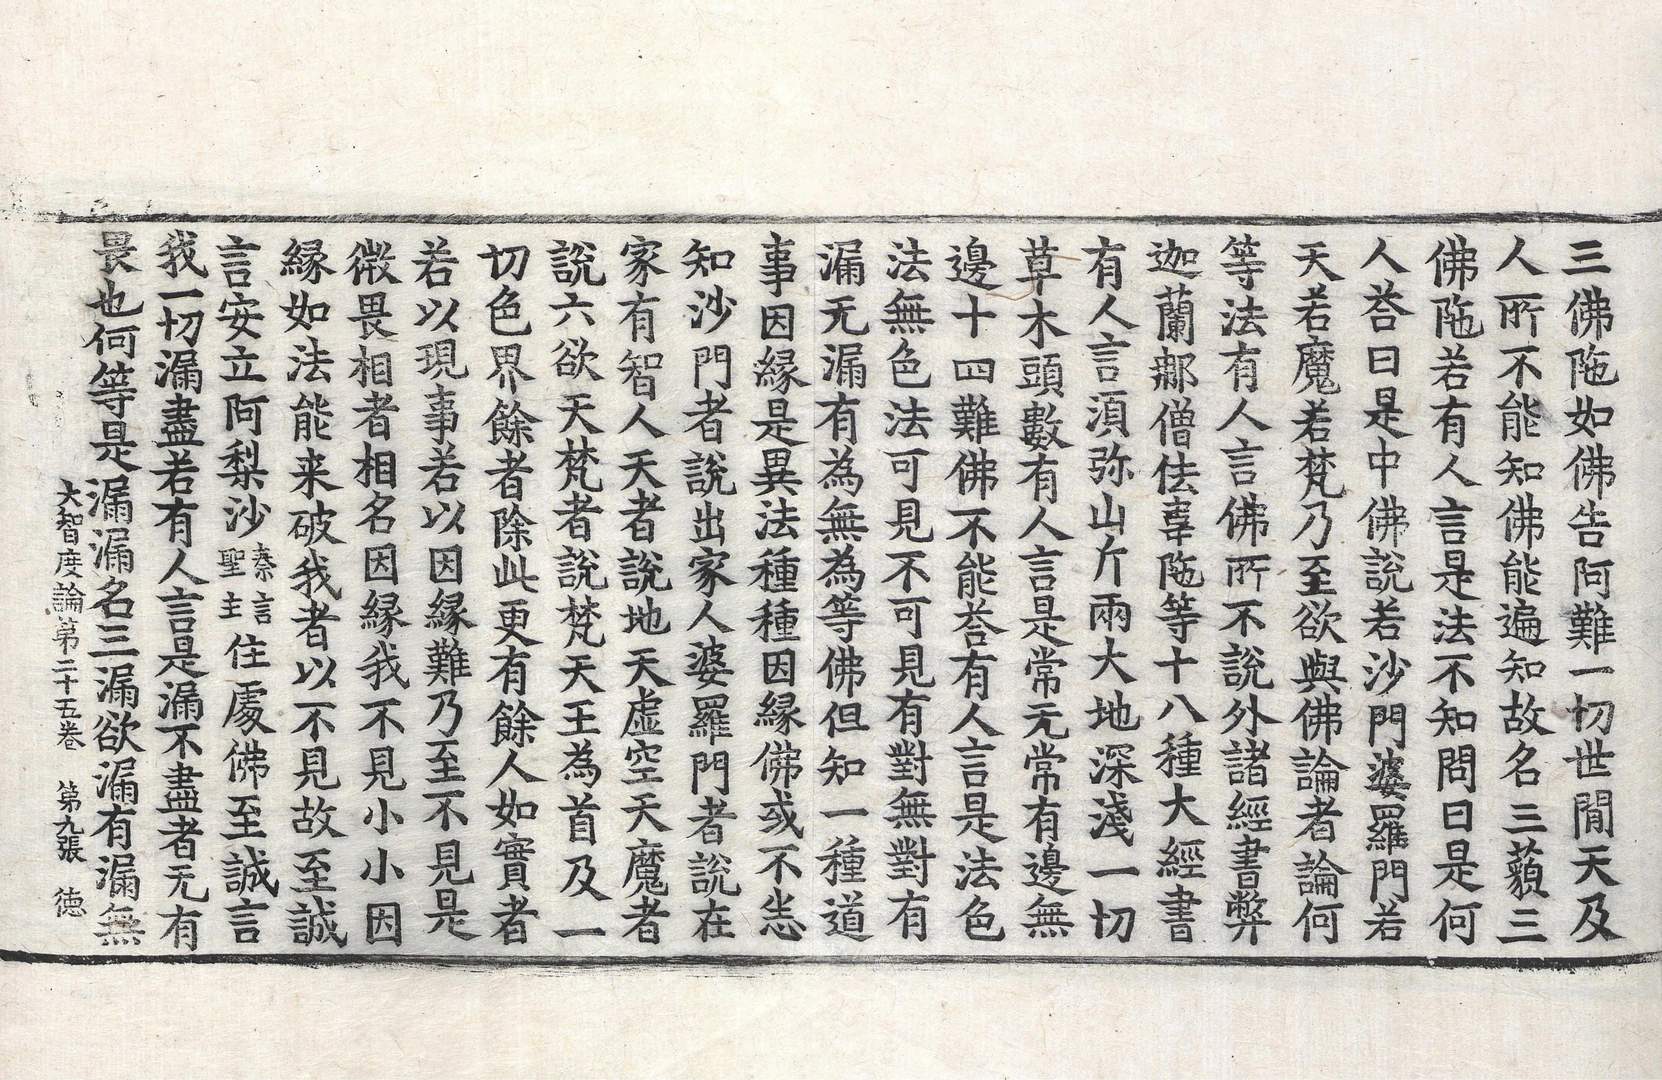 三佛陁如佛告阿難一切世閒天及
人所不能知佛能遍知故名三藐三
佛陁若有人言是法不知問曰是何
人荅曰是中佛說若沙門婆羅門若
天若魔若梵乃至欲與佛論者論何
等法有人言佛所不說外諸經書弊
迦蘭那僧佉韋陁等十八種大經書
有人言湏弥山斤兩大地深淺一切
草木頭數有人言是常无常有邊無
邊十四難佛不能荅有人言是法色
法無色法可見不可見有對無對有
漏无漏有為無為等佛但知一種道
事因縁是異法種種因縁佛或不悉
知沙門者說出家人婆羅門者說在
家有智人天者說地天虛空天魔者
說六欲天梵者說梵天王為首及一
切色界餘者除此更有餘人如實者
若以現事若以因縁難乃至不見是
微畏相者相名因縁我不見小小因
縁如法能来破我者以不見故至誠
言安立阿梨沙秦言聖主住處佛至誠言
我一切漏盡若有人言是漏不盡者无有
畏也何等是漏漏名三漏欲漏有漏無
大智度論第二十五卷 第九張 德